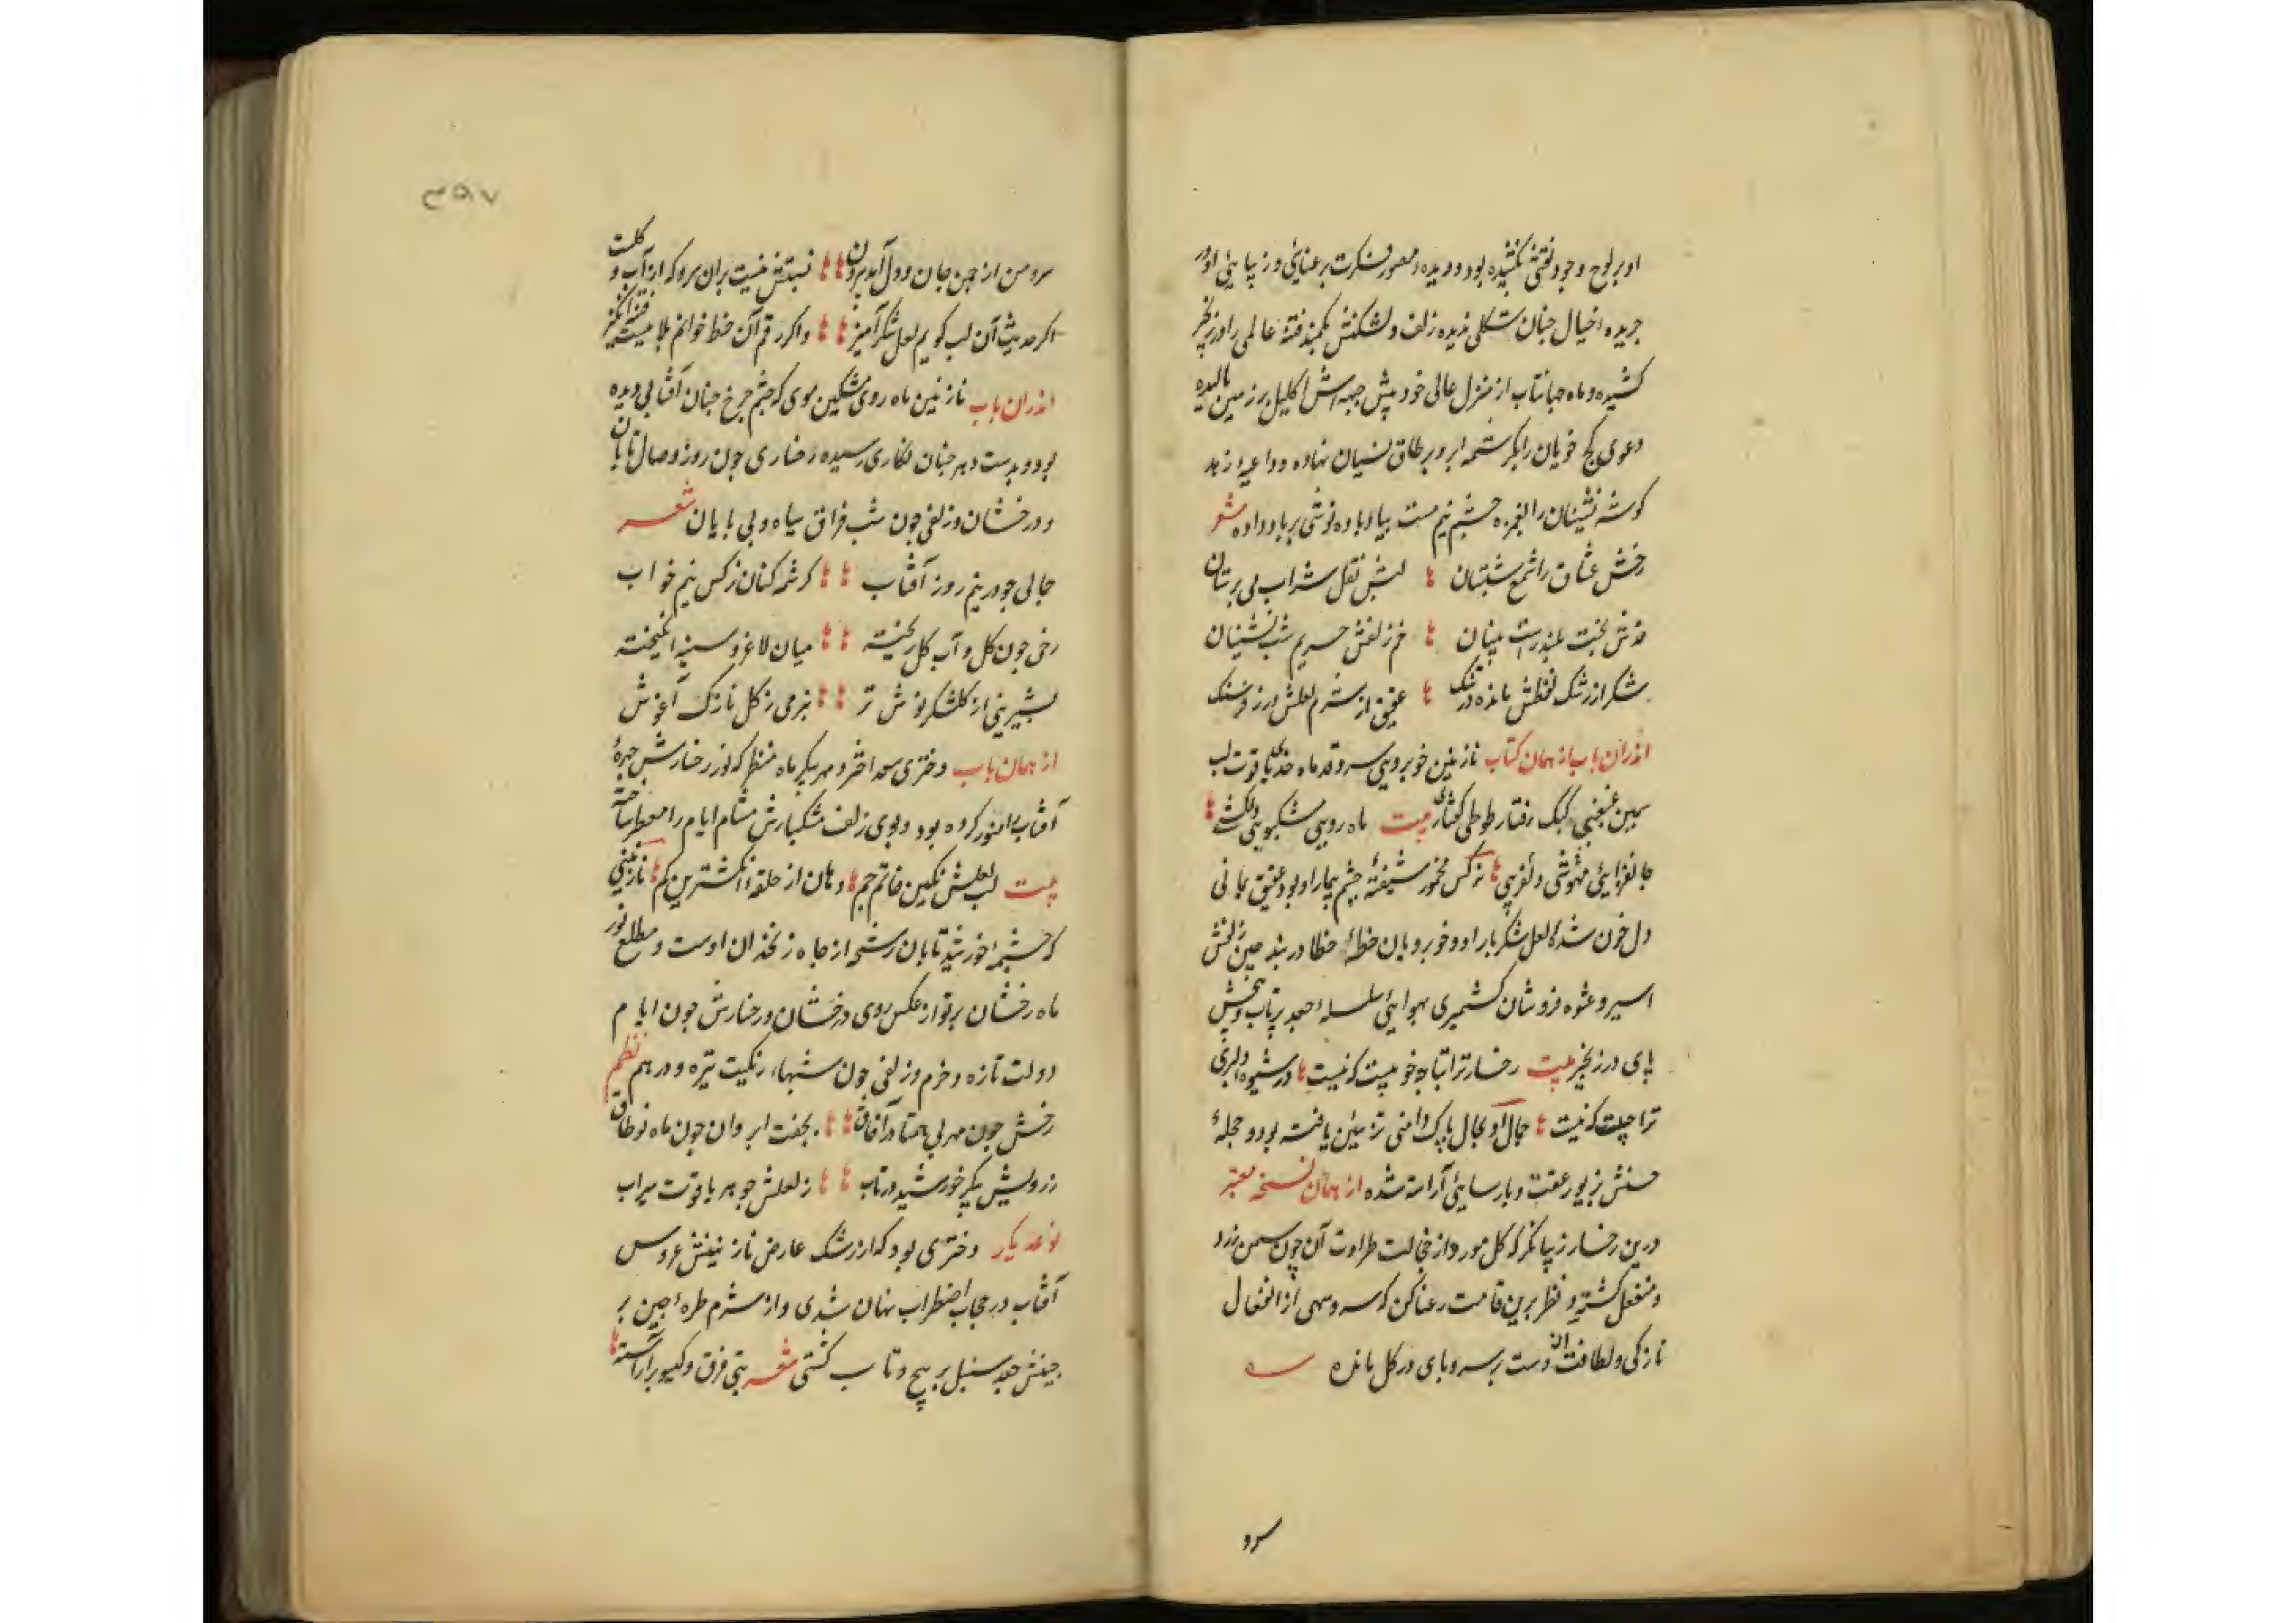 او بر لوح وجود نقشی نکشیده بود و دیده مصور فکرت برعنایی و زیبایی او در
جریده خیال چنان شکلی ندیده زلف دلشکنش بکمند فتنه عالمی را در زنجیر
کشیده و ماه جهانتاب از منزل عالی خود پیش جبهه اش اکلیل بر زمین مالیده
دعوی کج خویان را بکرشمه ابرو بر طاق نسیان نهاده و داعیه زهد
کوشه نشینان را بغمزه چشم نیم مست بیاد باده نوشی بر باد داده شعر
رخش عشاق را شمع شبستان لبش نقل شراب می پرستان
قدش بخت بلند راست بینان خم زلفش حریم شب نشینان
شکر از رشک لفظش مانده در تنک عقیق از شرم لعلش در زه سنک
اندران باب از همان کتاب نازنین خوبرویی سرو قد ماه خدی یاقوت لب
سیمین غبغبی کبک رفتار طوطی کفتاری بیت ماه رویی مشکبویی دلکشی
جانفزایی مهوشی دلفریبی نرکس مخمور شیفته چشم بیمار او بود و عقیق یمانی
دل خون شده لعل شکربار او و خوبرویان خطه خطا در بند چین زلفش
اسیر و عشوه فروشان کشمیری بهوایی سلسله جعد پرتاب و پیچش
پای در زنجیر بیت رخسار ترا تباه خوبیست که نیست در شیوه دلبری
ترا چیست که نیست جمال او بجمال پاک دامنی تزیین یافته بود و حجله
حسنش بزیور عفت و پارسایی آراسته شده از همان نسخه معتبر
درین رخسار زیبا نکر که کل مورد از خجالت طراوت آن چون سمن زرد
و منفعل کشته و نظر برین قامت رعنا کن که سرو سهی از انفعال
نازکی و لطافت ان دست بر سر و پای در کل مانده
سرو
۳۹۷
سرو من از چمن جان و دل آمد بیرون نسبتش نیست بران سرو که از آب و کلست
اکر حدیث آن لب کویم لعل شکر آمیز و اکر رقم آن خط خوانم بلا نیست فتنه انکیز
اندران باب نازنین ماه روی مشکین موی که چشم چرخ چنان آفتابی دیده
بود و بدست دهر چنان نکاری رسیده رخساری چون روز وصال تابان
و درخشان و زلفی چون شب فراق سیاه و بی پایان شعر
جمالی چو در نیم روز آفتاب کرشمه کنان نرکس نیم خواب
رخی چون کل و آب کل ریخته میان لاغر و سینه انکیخته
بشیرینی از کلشکر نوش تر بنرمی ز کل نازک آغوش
از همان باب دختری سعد اختر و مهر پیکر ماه منظر که نور رخسارش چهره
آفتاب را منور کرده بود و بوی زلف مشکبارش مشام ایام را معطر ساخته
بیت لب لعلش نکین خاتم جم دهان از حلقه انکشترین کم نازنینی
که چشمه خورشید تابان رشحه از چاه زنخدان اوست و مطلع نور
ماه رخشان پرتو از عکس روی درخشان و رخسارش چون ایام
دولت تازه و خرم و زلفی چون شبهاء زنکیت تیره و درهم نظم
رخش چون مهر بی همتا در آفاق بجفت ابروان چون ماه نو طاق
ز رویش پیکر خورشید در تاب ز لعلش جوهر یاقوت سیراب
نوعدیکر دختری بود که از رشک عارض نازنینش عروس
آفتاب در حجاب اضطراب نهان شدی و از شرم طره چین بر
چینش جعد سنبل پر پیچ و تاب کشتی شعر بتی فرق و کیسو برآراسته